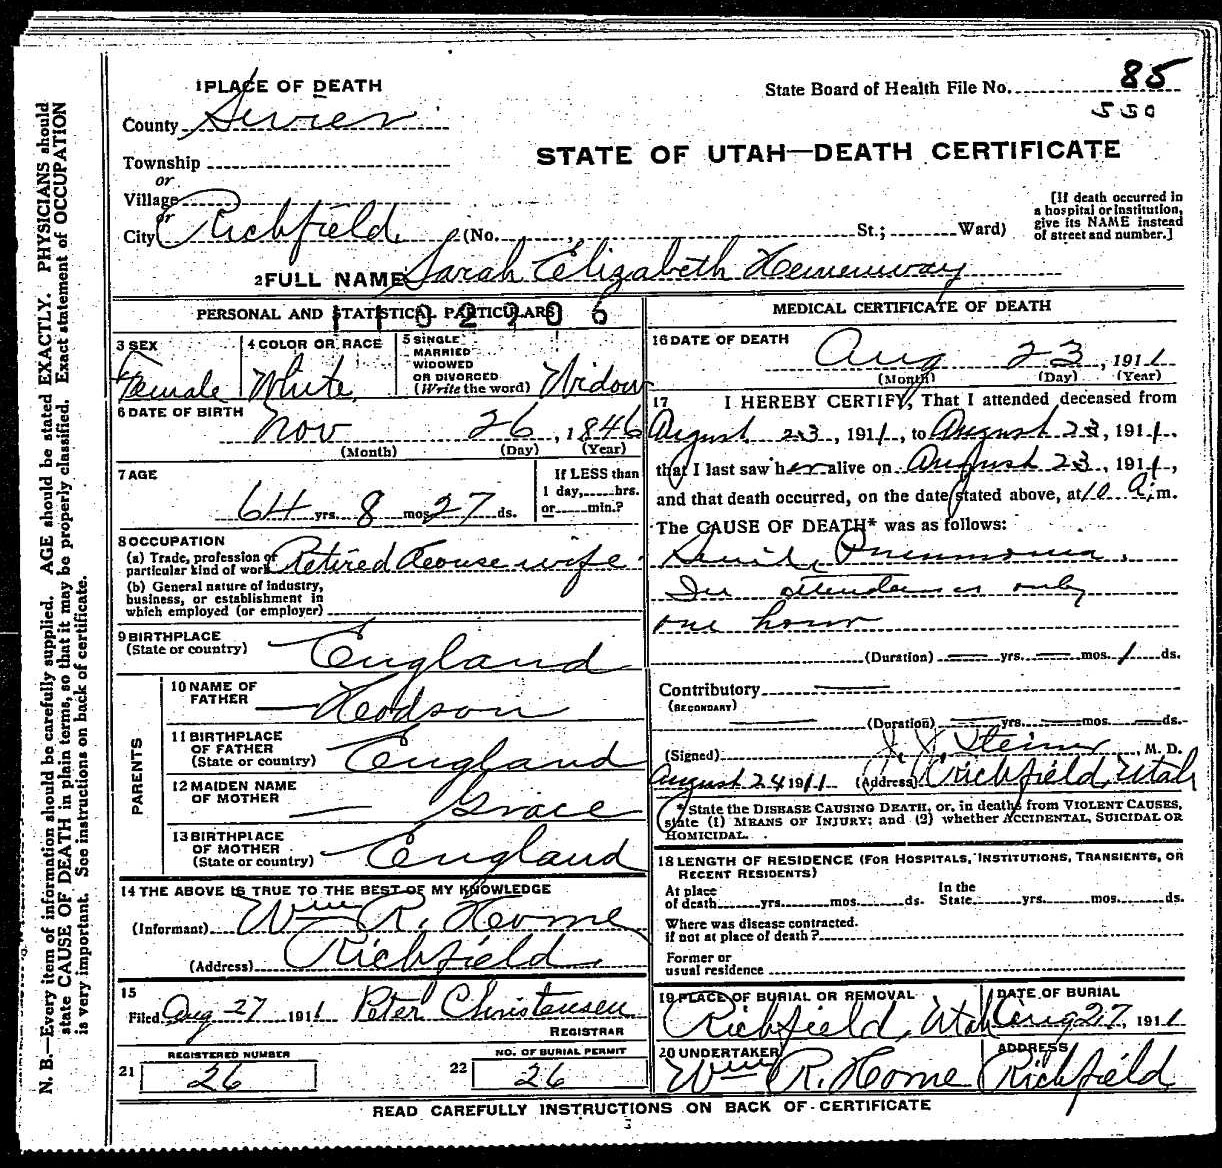 1 PLACE OF DEATH
State Board of Health File No. 85
550
County Sevier
STATE OF UTAH—DEATH CERTIFICATE
Township
or
Village
or
City Richfield (No. St.; Ward)
[If death occurred in
a hospital or institution,
give its NAME instead
of street and number.]
2 FULL NAME Sarah Elizabeth Hemenway
PERSONAL AND STATISTICAL PARTICULARS
3 SEX
Female
4 COLOR OR RACE
White
5 SINGLE
MARRIED
WIDOWED
OR DIVORCED
(Write the word) Widow
6 DATE OF BIRTH
Nov 26, 1846
(Month) (Day) (Year)
7 AGE
64 yrs. 8 mos. 27 ds.
If LESS than
1 day, hrs.
or min.?
8 OCCUPATION
(a) Trade, profession or
particular kind of work Retired House wife
(b) General nature of industry,
business, or establishment in
which employed (or employer)
9 BIRTHPLACE
(State or country) England
PARENTS
10 NAME OF
FATHER Hodson
11 BIRTHPLACE
OF FATHER
(State or country) England
12 MAIDEN NAME
OF MOTHER Grace
13 BIRTHPLACE
OF MOTHER
(State or country) England
14 THE ABOVE IS TRUE TO THE BEST OF MY KNOWLEDGE
(Informant) Wm R. Horne
(Address) Richfield
15
Filed Aug 27 1911 Peter Christensen
REGISTRAR
REGISTERED NUMBER
21 26
NO. OF BURIAL PERMIT
22 26
MEDICAL CERTIFICATE OF DEATH
16 DATE OF DEATH
Aug 23, 1911
(Month) (Day) (Year)
17 I HEREBY CERTIFY, That I attended deceased from
August 23, 1911, to August 23, 1911.
that I last saw her alive on August 23, 1911,
and that death occurred, on the date stated above, at 10 a.m.
The CAUSE OF DEATH* was as follows:
Senile Pneumonia.
In attendance only
one hour
(Duration) yrs. mos. 1 ds.
Contributory
(SECONDARY)
(Duration) yrs. mos. ds.
(Signed) J. J. Steiner, M. D.
August 24 1911 (Address) Richfield, Utah
* State the DISEASE CAUSING DEATH, or, in deaths from VIOLENT CAUSES,
state (1) MEANS OF INJURY; and (2) whether ACCIDENTAL, SUICIDAL OR
HOMICIDAL.
18 LENGTH OF RESIDENCE (FOR HOSPITALS, INSTITUTIONS, TRANSIENTS, OR
RECENT RESIDENTS)
At place
of death yrs. mos. ds.
In the
State yrs. mos. ds.
Where was disease contracted.
if not at place of death?
Former or
usual residence
19 PLACE OF BURIAL OR REMOVAL
Richfield, Utah
DATE OF BURIAL
Aug 27, 1911
20 UNDERTAKER
Wm R. Horne
ADDRESS
Richfield
READ CAREFULLY INSTRUCTIONS ON BACK OF CERTIFICATE
N. B.—Every item of information should be carefully supplied. AGE should be stated EXACTLY. PHYSICIANS should
state CAUSE OF DEATH in plain terms, so that it may be properly classified. Exact statement of OCCUPATION
is very important. See instructions on back of certificate.